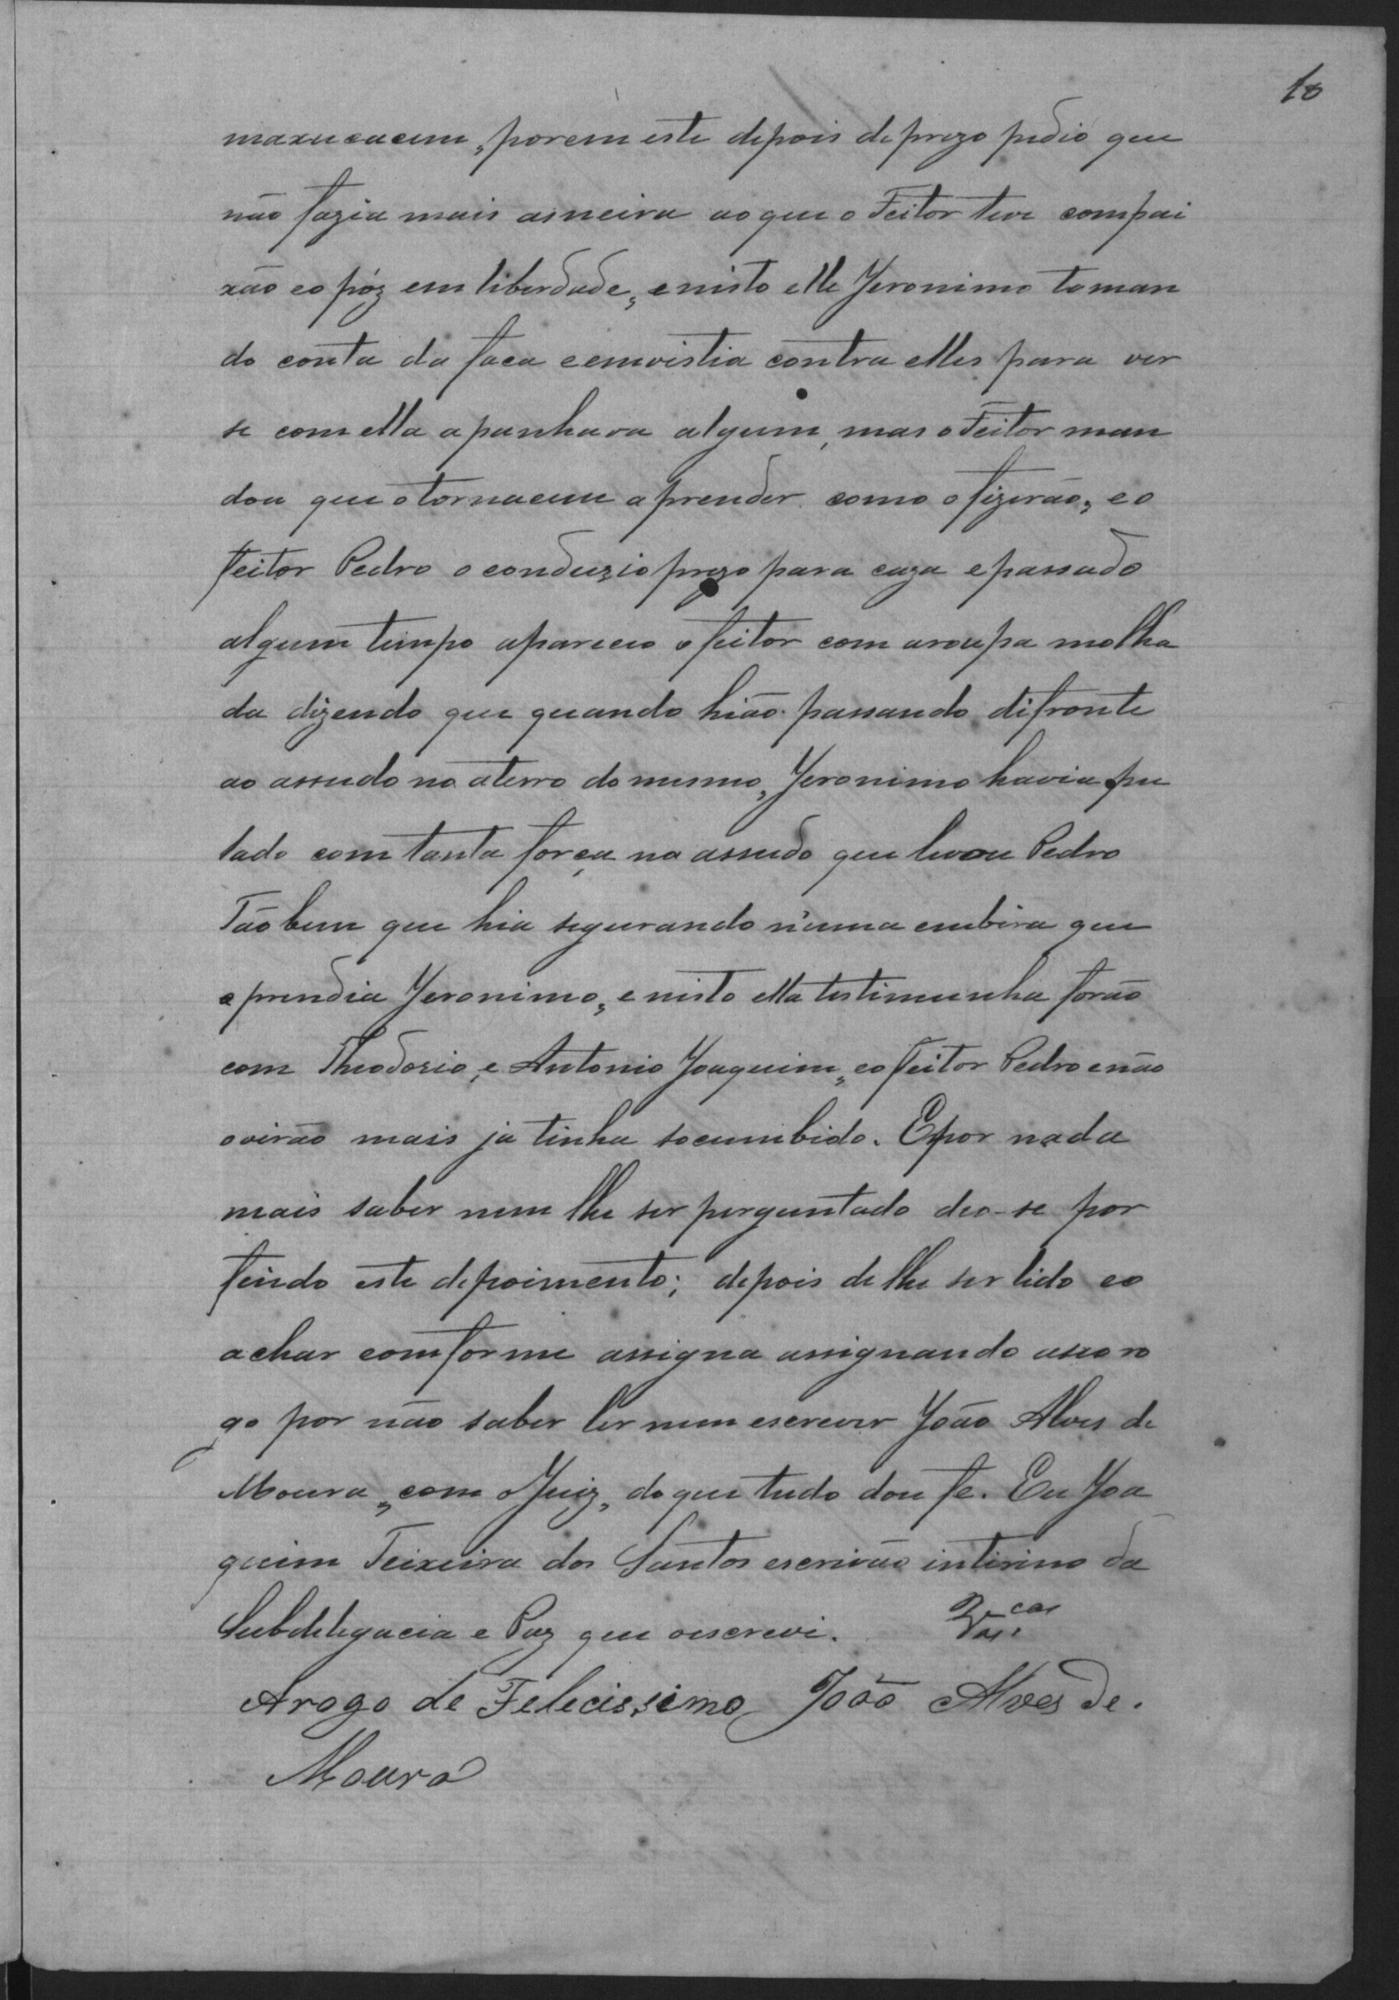 10
maxucacem, porem este depois de prezo pedio que
não fazia mais asneira ao que o Feitor teve compai
xão e o pôz em liberdade, e nisto elle Jeronimo toman
do conta da faca e envistia contra elles para ver
se com ella apanhava algum, mas o Feitor man
dou que o tornacem a prender como o fizerão, e o
feitor Pedro o conduzio prezo para caza e passado
algum tempo apareceo o feitor com a roupa molha
da dizendo que quando hião passando difronte
ao assudo no aterro do mesmo, Jeronimo havia pu
lado com tanta força no assudo que levou Pedro
Tão bem que hia segurando n'uma embira que
prendia Jeronimo, e nisto ella testimunha forão
com Theodosio, e Antonio Joaquim, e o feitor Pedro e não
o virão mais ja tinha socumbido. E por nada
mais saber nem lhe ser perguntado deo-se por
findo este depoimento; depois de lhe ser lido e o
achar comforme assigna assignando a seo ro
go por não saber ler nem escrever João Alves de
Moura, com o Juiz, do que tudo dou fe. Eu Joa
quim Teixeira dos Santos escrivão intirino da
Subdelegacia e Paz que o escrevi.
Arogo de Felecissimo João Alves de.
Moura